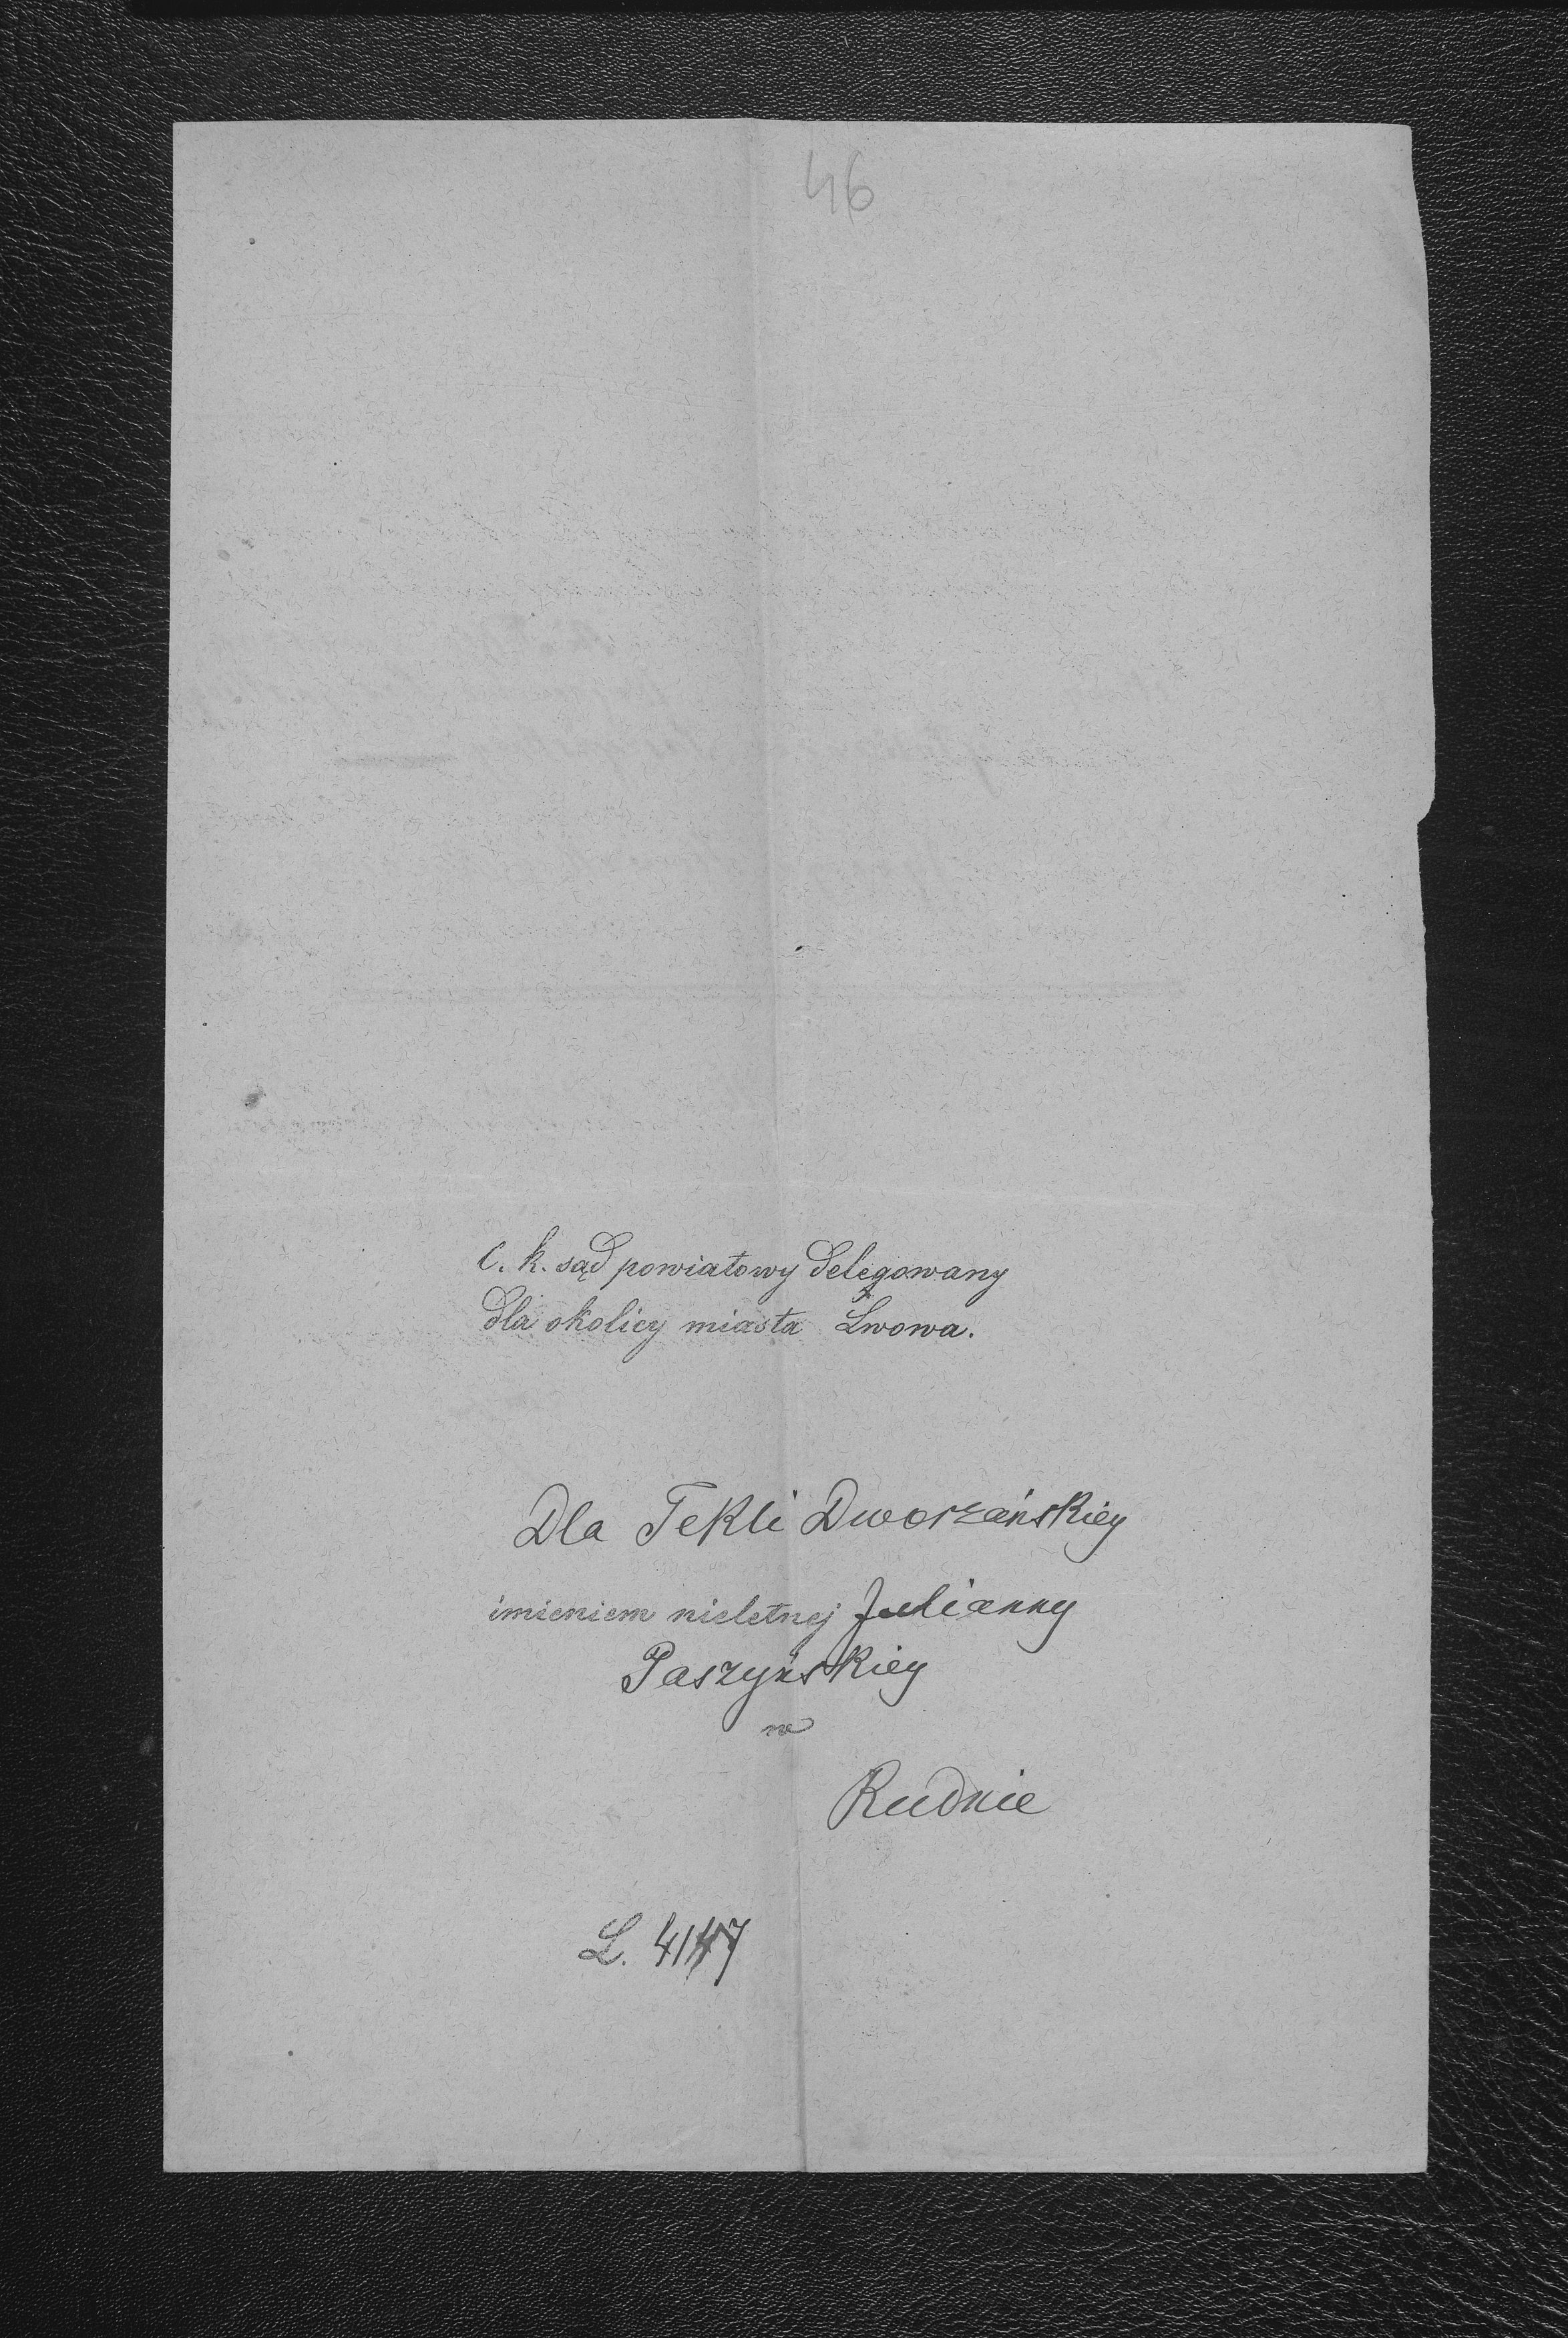 46
C. k. sąd powiatowy delegowany
dla okolicy miasta Lwowa.
Dla Tekli Dworzańskiey
imieniem nieletnej Julianny
Paszyńskiey
w
Rudnie
L. 4147